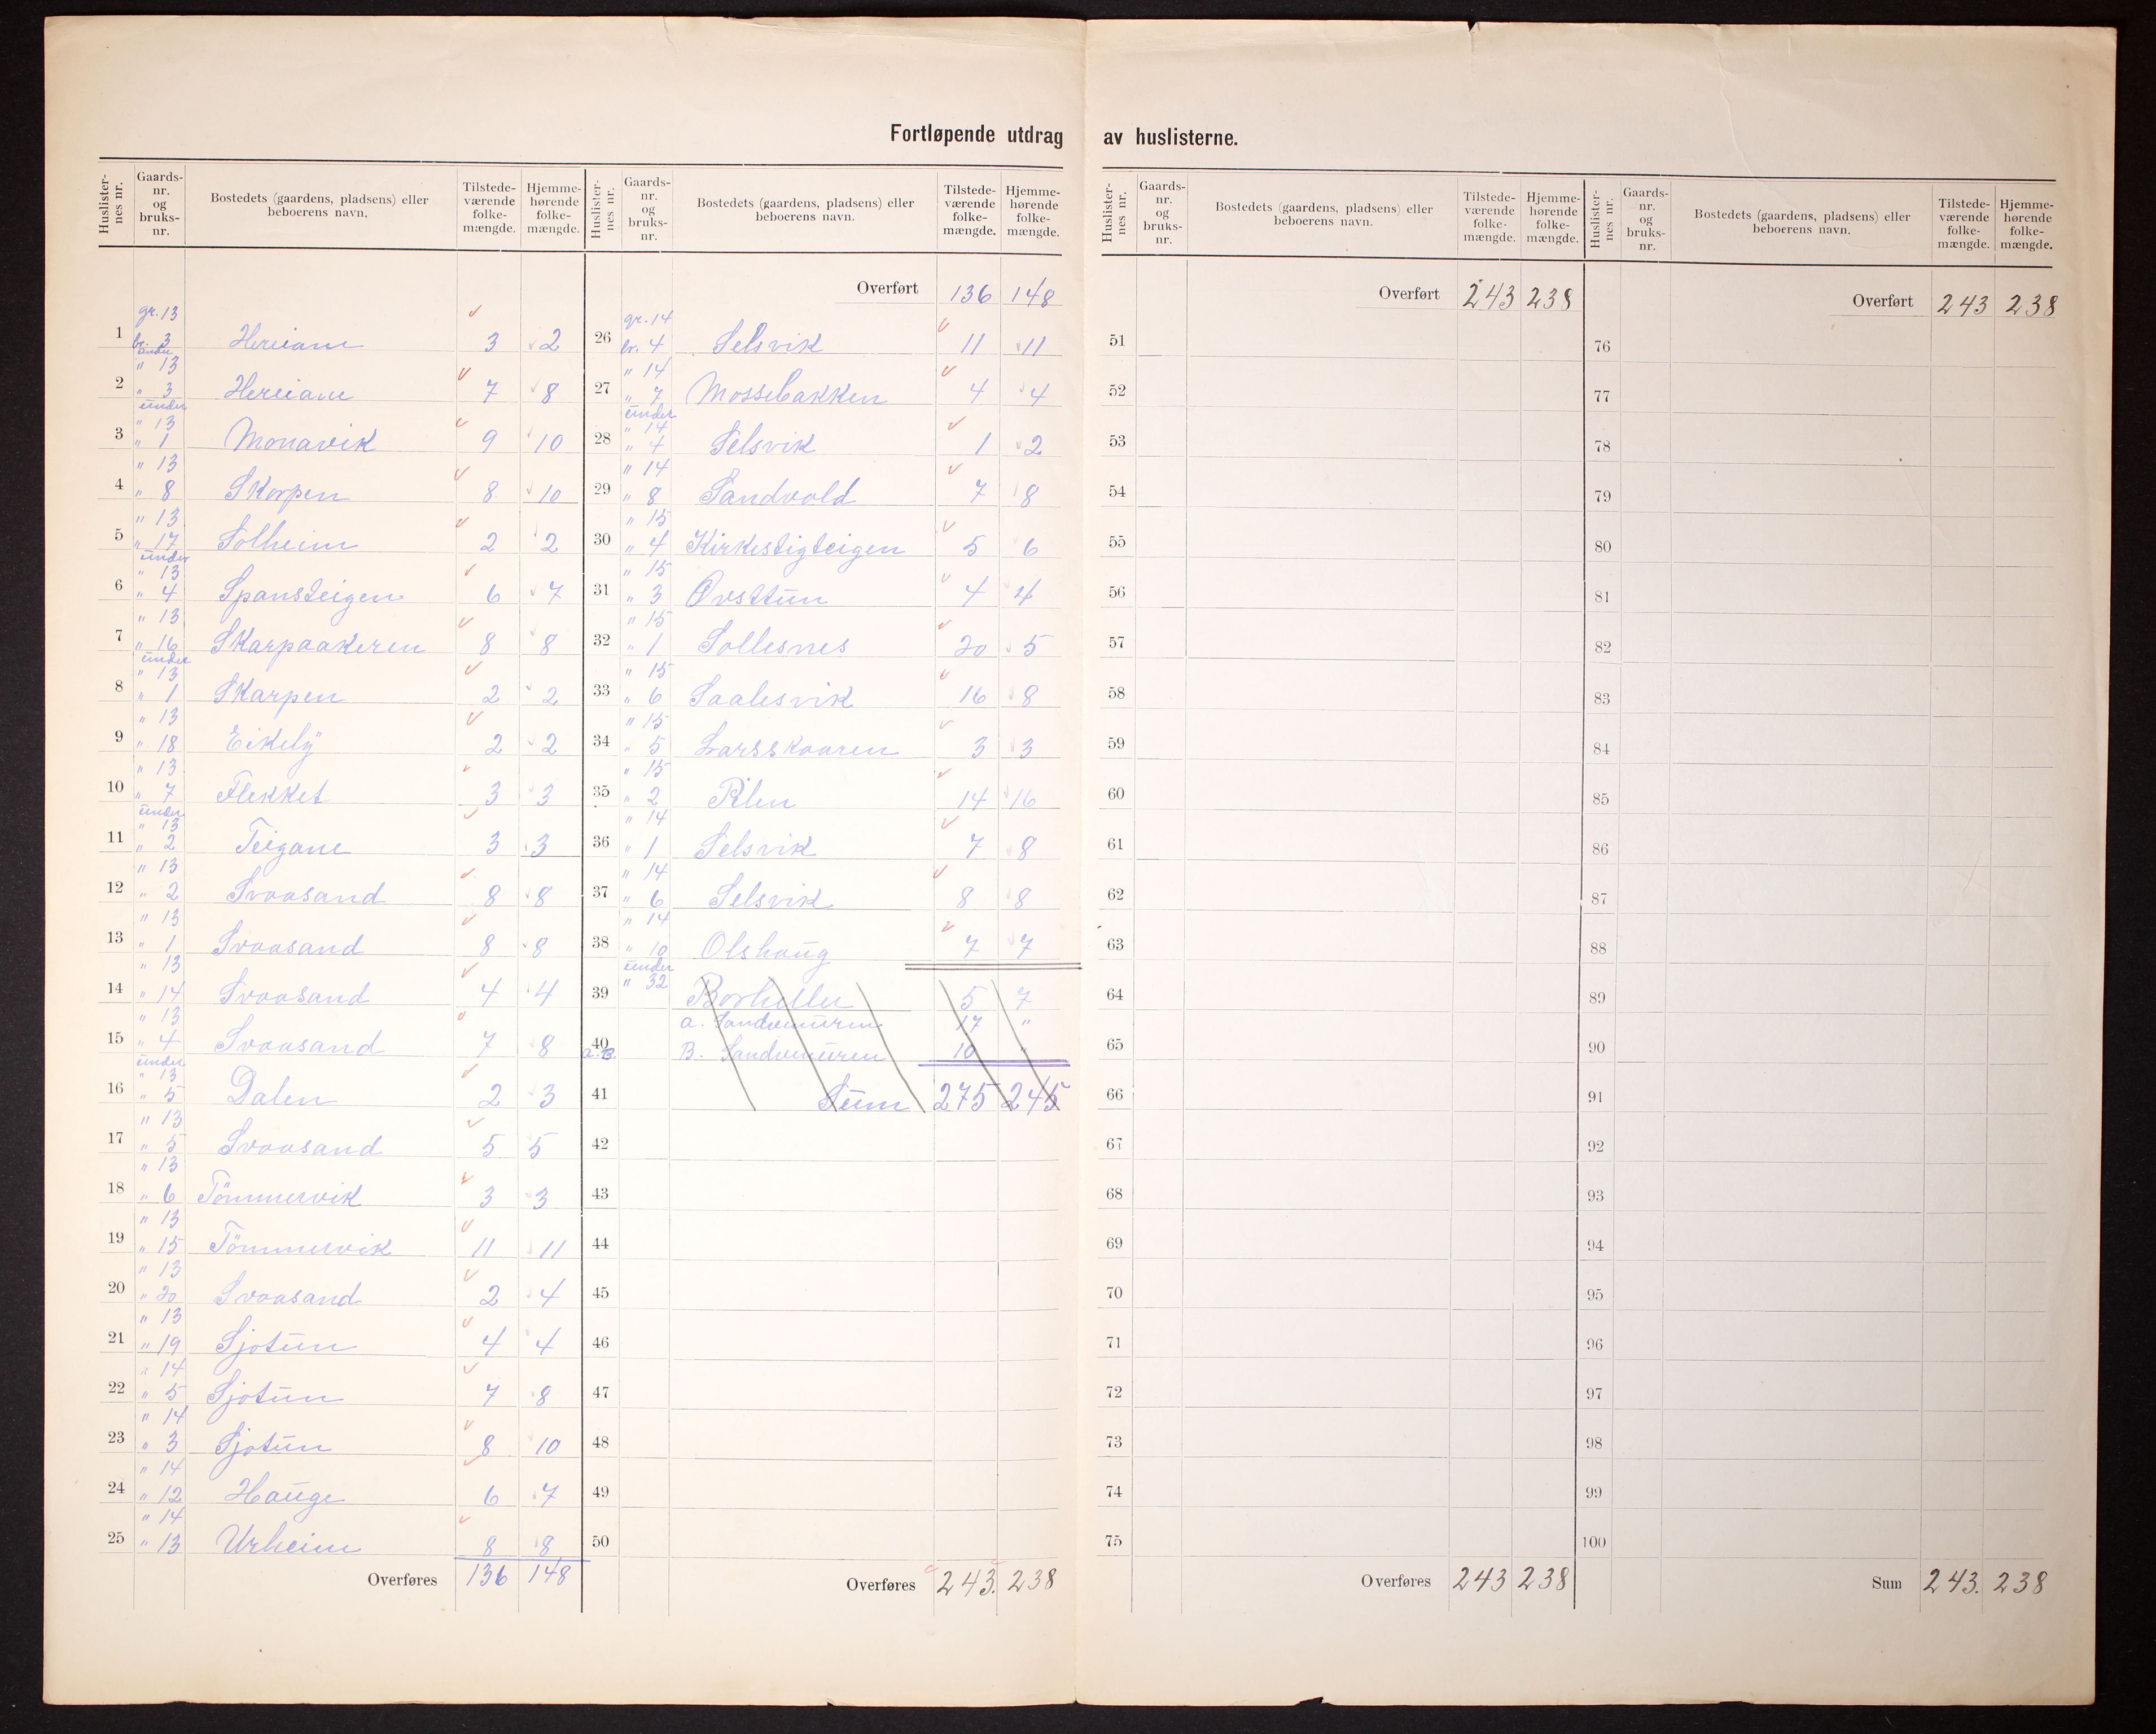 Fortløpende utdrag av huslisterne.
Huslister-nes nr. Gaards-nr. og bruks-nr. Bostedets (gaardens, pladsens) eller beboerens navn. Tilstede-værende folke-mængde. Hjemme-hørende folke-mængde.
gr. 13
1 br. 3 Hereiane 3 2
under
" 13
2 " 3 Hereiane 7 8
under
" 13
3 " 1 Monavik 9 10
" 13
4 " 8 Skorpen 8 10
" 13
5 " 17 Solheim 2 2
under
" 13
6 " 4 Spansteigen 6 7
" 13
7 " 16 Skarpaakeren 8 8
under
" 13
8 " 1 Skarpen 2 2
" 13
9 " 18 Eikely 2 2
" 13
10 " 7 Flekket 3 3
under
" 13
11 " 2 Teigane 3 3
" 13
12 " 2 Svaasand 8 8
" 13
13 " 1 Svaasand 8 8
" 13
14 " 14 Svaasand 4 4
" 13
15 " 4 Svaasand 7 8
under
" 13
16 " 5 Dalen 2 3
" 13
17 " 5 Svaasand 5 5
" 13
18 " 6 Tömmervik 3 3
" 13
19 " 15 Tömmervik 11 11
" 13
20 " 20 Svaasand 2 4
" 13
21 " 19 Sjotun 4 4
" 14
22 " 5 Sjotun 7 8
" 14
23 " 3 Sjotun 8 10
" 14
24 " 12 Hauge 6 7
" 14
25 " 13 Urheim 8 8
Overføres 136 148
Huslister-nes nr. Gaards-nr. og bruks-nr. Bostedets (gaardens, pladsens) eller beboerens navn. Tilstede-værende folke-mængde. Hjemme-hørende folke-mængde.
Overført 136 148
gr. 14
26 br. 4 Selsvik 11 11
" 14
27 " 7 Mossebakken 4 4
under
" 14
28 " 4 Selsvik 1 2
" 14
29 " 8 Sandvold 7 8
" 15
30 " 4 Kirkestigteigen 5 6
" 15
31 " 3 Øvsttun 4 4
" 15
32 " 1 Sollesnes 20 5
" 15
33 " 6 Saalesvik 16 8
" 15
34 " 5 Larsskaaren 3 3
" 15
35 " 2 Pilen 14 16
" 14
36 " 1 Selsvik 7 8
" 14
37 " 6 Selsvik 8 8
" 14
38 " 10 Olshaug 7 7
under
39 " 32 Borheller 5 7
a. Sandvenuren 17 "
40 a. B. B. Sandvenuren 10 "
41 Sum 275 245
42
43
44
45
46
47
48
49
50
Overføres 243. 238
Huslister-nes nr. Gaards-nr. og bruks-nr. Bostedets (gaardens, pladsens) eller beboerens navn. Tilstede-værende folke-mængde. Hjemme-hørende folke-mængde.
Overført 243 238
51
52
53
54
55
56
57
58
59
60
61
62
63
64
65
66
67
68
69
70
71
72
73
74
75
Overføres 243 238
Huslister-nes nr. Gaards-nr. og bruks-nr. Bostedets (gaardens, pladsens) eller beboerens navn. Tilstede-værende folke-mængde. Hjemme-hørende folke-mængde.
Overført 243 238
76
77
78
79
80
81
82
83
84
85
86
87
88
89
90
91
92
93
94
95
96
97
98
99
100
Sum 243. 238